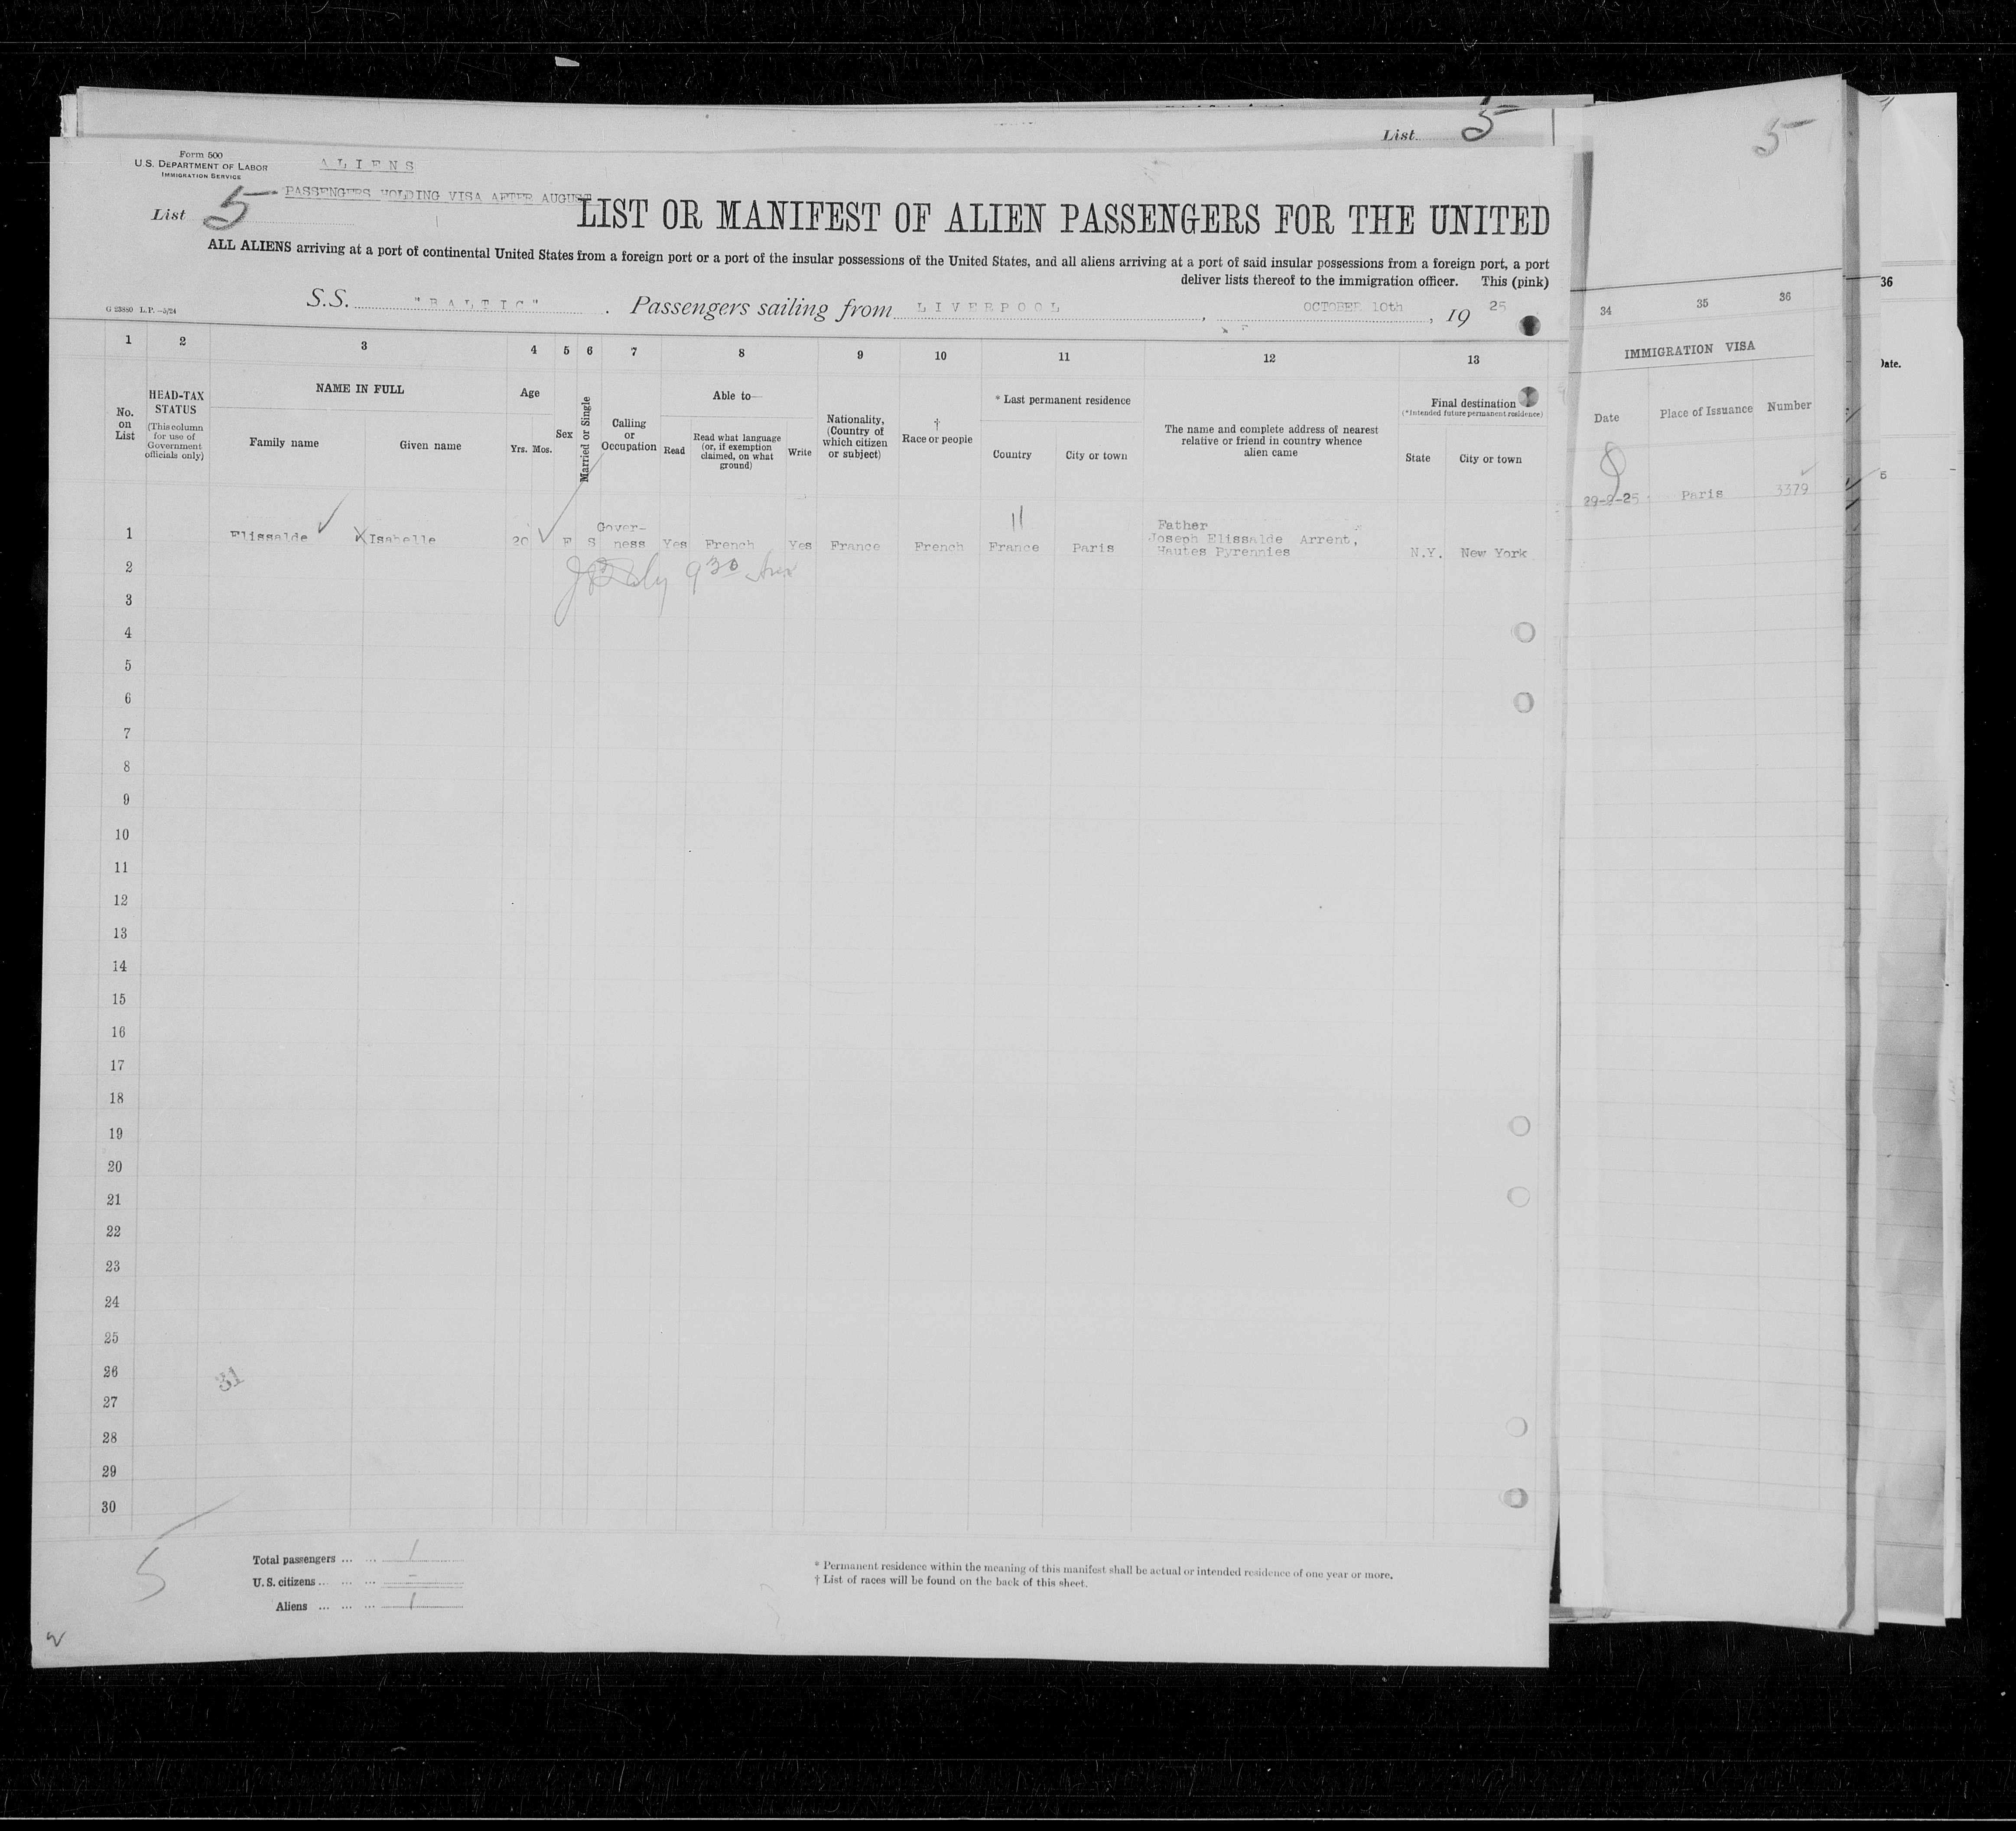 List 5
5
Form 500
U.S. DEPARTMENT OF LABOR
IMMIGRATION SERVICE
ALIENS
PASSENGERS HOLDING VISA AFTER AUGUST
List 5
LIST OR MANIFEST OF ALIEN PASSENGERS FOR THE UNITED
ALL ALIENS arriving at a port of continental United States from a foreign port or a port of the insular possessions of the United States, and all aliens arriving at a port of said insular possessions from a foreign port, a port
deliver lists thereof to the immigration officer. This (pink)
G 23880 L.P.—5/24
S.S. "BALTIC" . Passengers sailing from LIVERPOOL, OCTOBER 10th, 1925
1 2 3 4 5 6 7 8 9 10 11 12 13 34 35 36 36
IMMIGRATION VISA
No. on List
HEAD-TAX STATUS
(This column for use of Government officials only)
NAME IN FULL
Family name Given name
Age
Yrs. Mos.
Sex
Married or Single
Calling or Occupation
Able to—
Read
Read what language (or, if exemption claimed, on what ground)
Write
Nationality, (Country of which citizen or subject)
† Race or people
* Last permanent residence
Country City or town
The name and complete address of nearest relative or friend in country whence alien came
Final destination
(*Intended future permanent residence)
State City or town
Date Place of Issuance Number
Date.
29-9-25 Paris 3379
5
11
1 Elissalde X Isabelle 20 F S Gover-
ness Yes French Yes France French France Paris Father
Joseph Elissalde Arrent,
Hautes Pyrennies N.Y. New York
2
3
4
5
6
7
8
9
10
11
12
13
14
15
16
17
18
19
20
21
22
23
24
25
26
31
27
28
29
30
5
Total passengers ... ... 1
U.S. citizens ... ... ... -
Aliens ... ... ... 1
* Permanent residence within the meaning of this manifest shall be actual or intended residence of one year or more.
† List of races will be found on the back of this sheet.